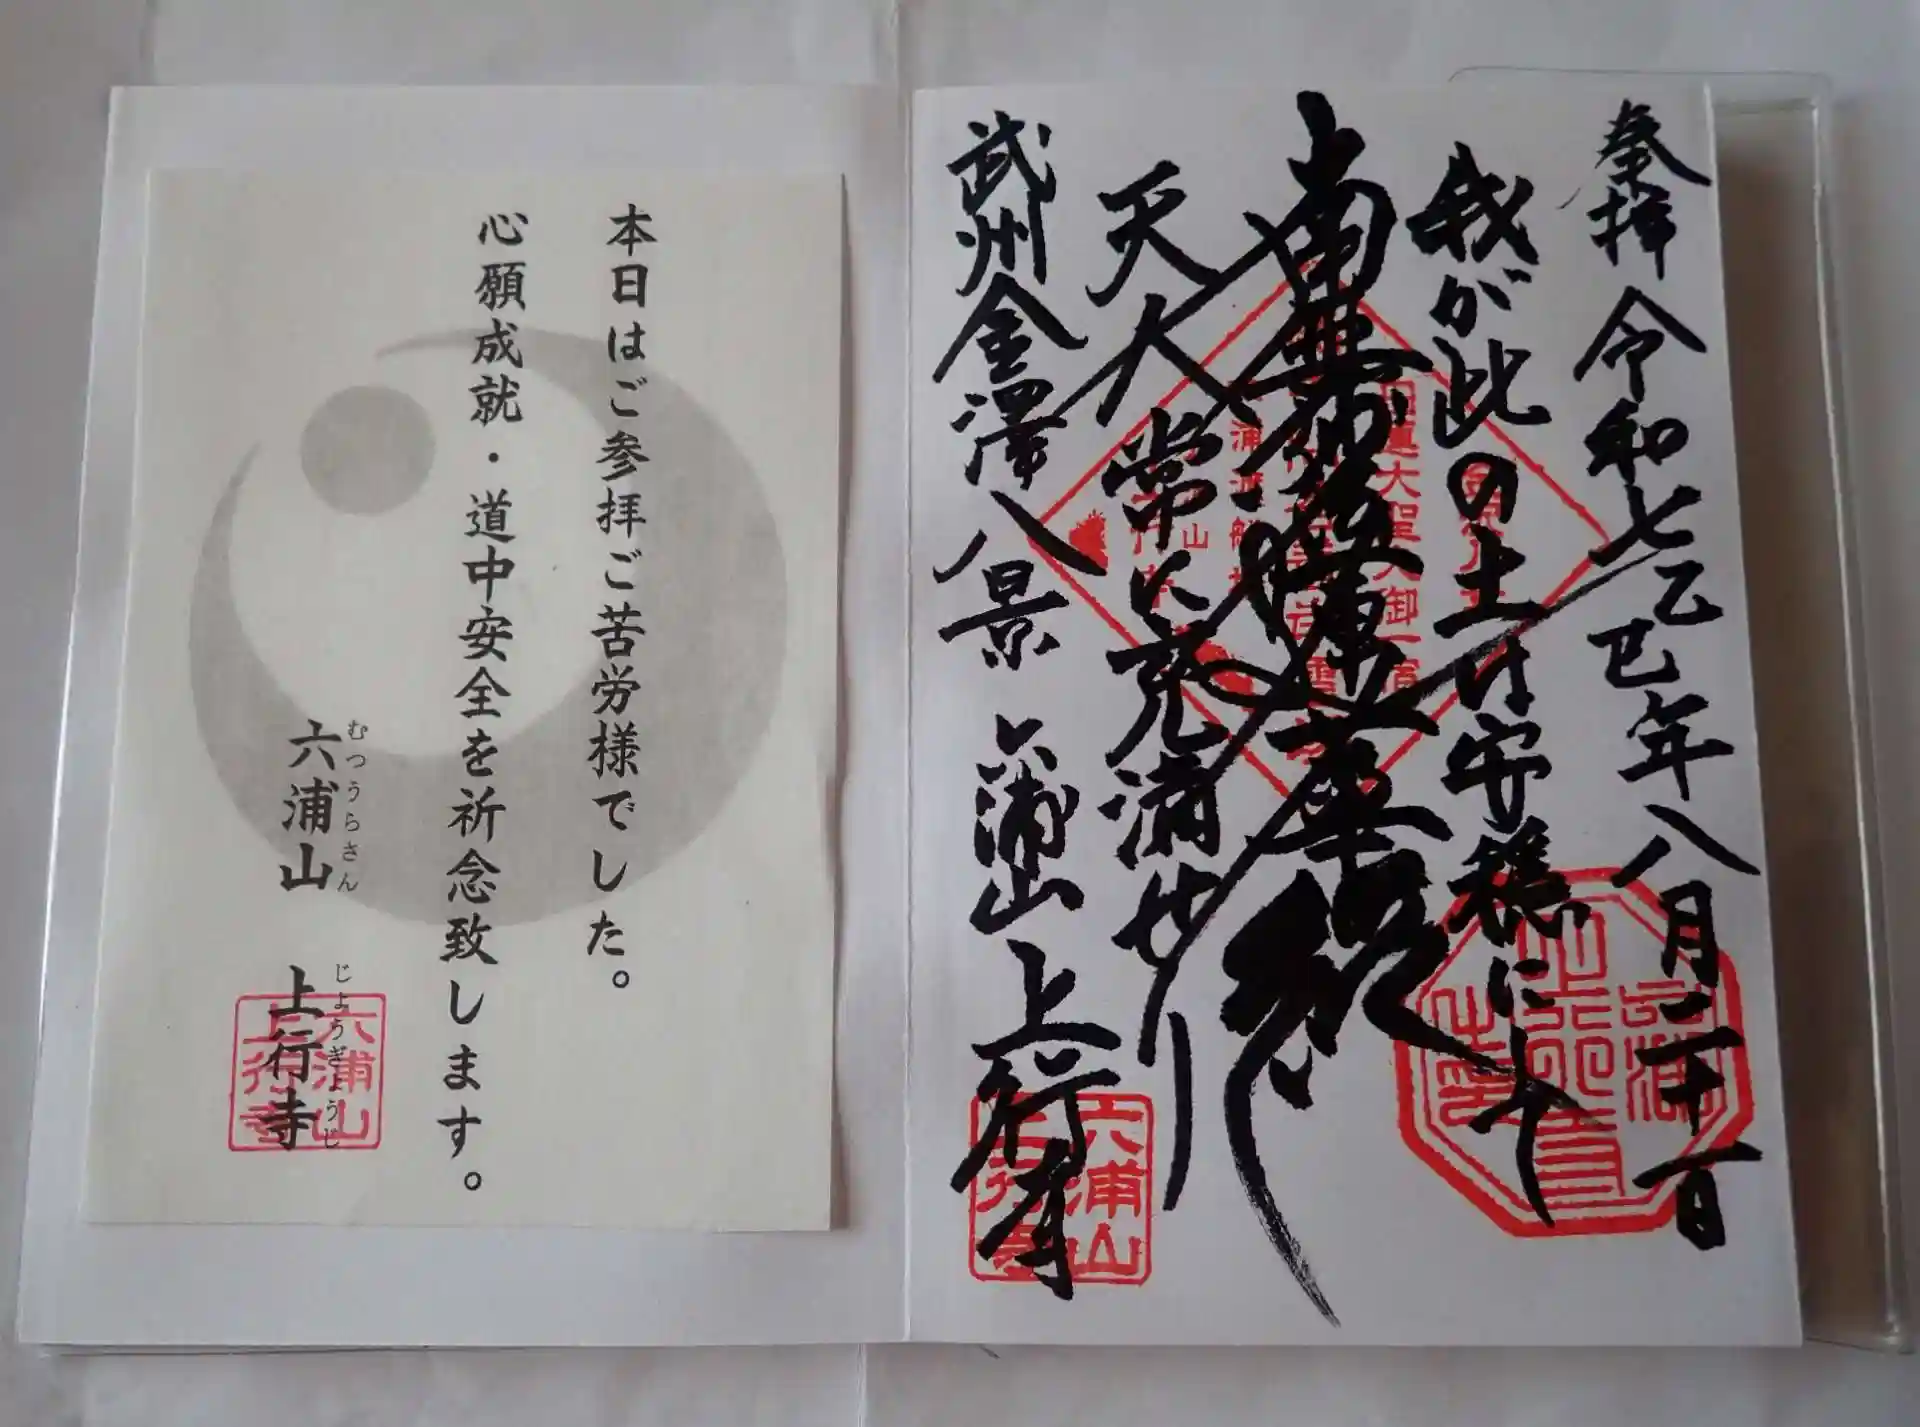 奉拝 令和七乙巳年八月二十一日
我が此の土は安穏にして
南無妙法蓮華経
天人常に充満せり
武州金澤八景 六浦山 上行寺
六浦山
上行寺
本日はご参拝ご苦労様でした。
心願成就・道中安全を祈念致します。
むつうらさん じょうぎょうじ
六浦山 上行寺
六浦山
上行寺